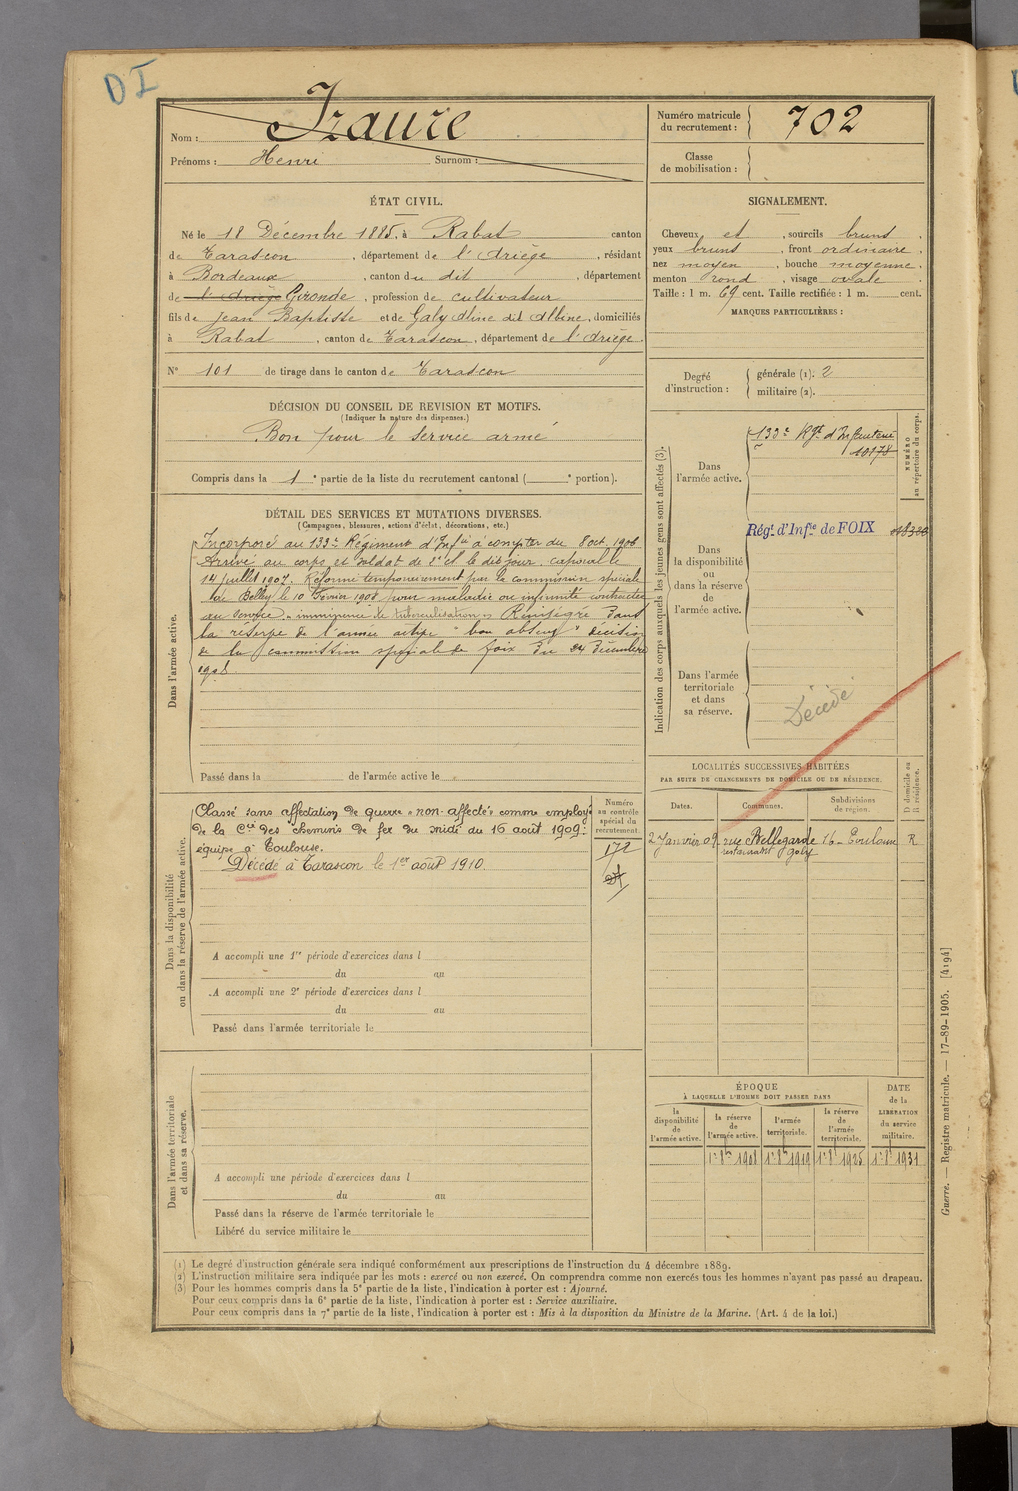 DI
Nom : Izaure
Prénoms : Henri Surnom :
Numéro matricule du recrutement : 702
Classe de mobilisation :
ÉTAT CIVIL.
Né le 18 Décembre 1885, à Rabat canton
de Tarascon, département de l'Ariège, résidant
à Bordeaux, canton du dit, département
de l'Ariège Gironde, profession de cultivateur
fils de Jean Baptiste et de Galy Aline dit Albine, domiciliés
à Rabat, canton de Tarascon, département de l'Ariège.
N° 101 de tirage dans le canton de Tarascon
SIGNALEMENT.
Cheveux et, sourcils bruns,
yeux bruns, front ordinaire,
nez moyen, bouche moyenne,
menton rond, visage ovale.
Taille : 1 m. 69 cent. Taille rectifiée : 1 m. cent.
MARQUES PARTICULIÈRES :
Degré d'instruction : générale (1). 2
militaire (2).
DÉCISION DU CONSEIL DE REVISION ET MOTIFS.
(Indiquer la nature des dispenses.)
Bon pour le service armé
Compris dans la 1e partie de la liste du recrutement cantonal ( e portion).
DÉTAIL DES SERVICES ET MUTATIONS DIVERSES.
(Campagnes, blessures, actions d'éclat, décorations, etc.)
Dans l'armée active.
Incorporé au 133e Régiment d'Infie à compter du 8 oct. 1906
Arrivé au corps et soldat de 2e cl le dit jour. caporal le
14 juillet 1907. Réformé temporairement par la commission spéciale
de Belley le 10 février 1908 pour maladie ou infirmité contractée
au service. "imminence de tuberculisation" Réintégré dans
la réserve de l'armée active "bon absent" décision
de la commission spéciale de Foix du 24 Décembre
1908
Passé dans la de l'armée active le
Indication des corps auxquels les jeunes gens sont affectés (3).
NUMÉRO au répertoire du corps.
Dans l'armée active.
133e Rgt d'Infanterie
10178
Dans la disponibilité ou dans la réserve de l'armée active.
Régt d'Infie de FOIX
Dans l'armée territoriale et dans sa réserve.
Décédé
Dans la disponibilité ou dans la réserve de l'armée active.
Classé sans affectation de guerre "non-affectés" comme employé
de la Cie des chemins de fer du midi du 16 août 1909 :
équipe à Toulouse.
Décédé à Tarascon le 1er août 1910.
Numéro au contrôle spécial du recrutement.
172
A accompli une 1re période d'exercices dans l
du au
A accompli une 2e période d'exercices dans l
du au
Passé dans l'armée territoriale le
LOCALITÉS SUCCESSIVES HABITÉES
PAR SUITE DE CHANGEMENTS DE DOMICILE OU DE RÉSIDENCE.
Dates. Communes. Subdivisions de région. D domicile ou R résidence.
2 Janvier 09. rue Bellegarde 16 - Toulouse R
restaurant Galy
Dans l'armée territoriale et dans sa réserve.
A accompli une période d'exercices dans l
du au
Passé dans la réserve de l'armée territoriale le
Libéré du service militaire le
ÉPOQUE
À LAQUELLE L'HOMME DOIT PASSER DANS
la disponibilité de l'armée active. la réserve de l'armée active. l'armée territoriale. la réserve de l'armée territoriale. DATE de la LIBÉRATION du service militaire.
1er 8bre 1908 1er 8 1919 1er 8 1925 1er 8 1931
Guerre. — Registre matricule. — 17-89-1905. [4194]
(1) Le degré d'instruction générale sera indiqué conformément aux prescriptions de l'instruction du 4 décembre 1889.
(2) L'instruction militaire sera indiquée par les mots : exercé ou non exercé. On comprendra comme non exercés tous les hommes n'ayant pas passé au drapeau.
(3) Pour les hommes compris dans la 5e partie de la liste, l'indication à porter est : Ajourné.
Pour ceux compris dans la 6e partie de la liste, l'indication à porter est : Service auxiliaire.
Pour ceux compris dans la 7e partie de la liste, l'indication à porter est : Mis à la disposition du Ministre de la Marine. (Art. 4 de la loi.)